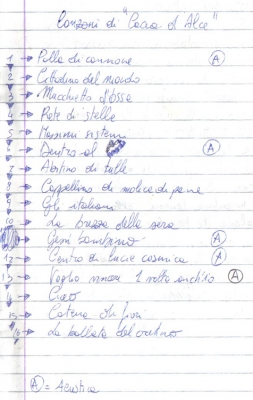 Canzoni di "Cacca d'Alce"
1 → Pollo di cannone Ⓐ
2 → Cittadino del mondo
3 → Macchietta d'
4 → Rete di stelle
5 → Massimi sistemi
6 → Dentro al Ⓐ
7 → Abitino di tulle
8 → Cappellino di mollica di pane
9 → Gli italiani
10 → La brezza della sera
→ Gesù bambino Ⓐ
12 → Centro di luce cosmica Ⓐ
13 → Voglio vincere 1 volta anch'io Ⓐ
14 → Ciao
15 → Catena di fiori
16 → La ballata del cretino
Ⓐ = Acustica